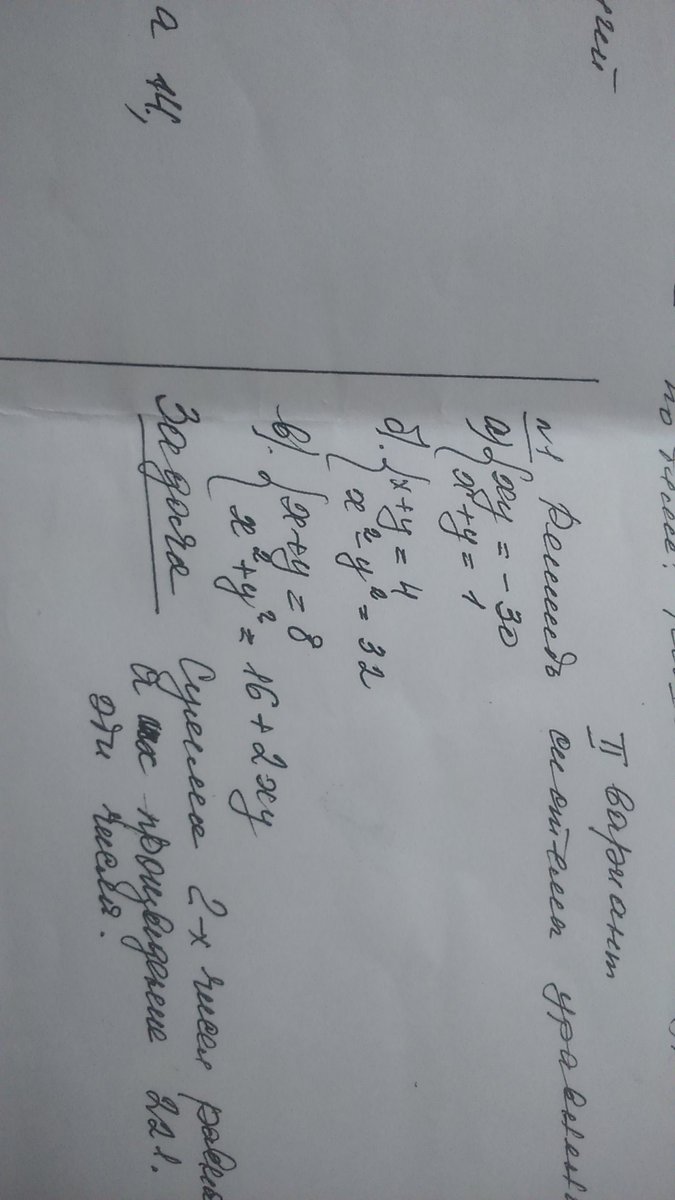 а 14,
II вариант
№1 Решить системы уравнен
а) { xy = -30
x + y = 1
б). { x + y = 4
x² - y² = 32
в). { x + y = 8
x² + y² = 16 + 2xy
Задача Сумма 2-х чисел равна
а их произведение 221.
эти числа.